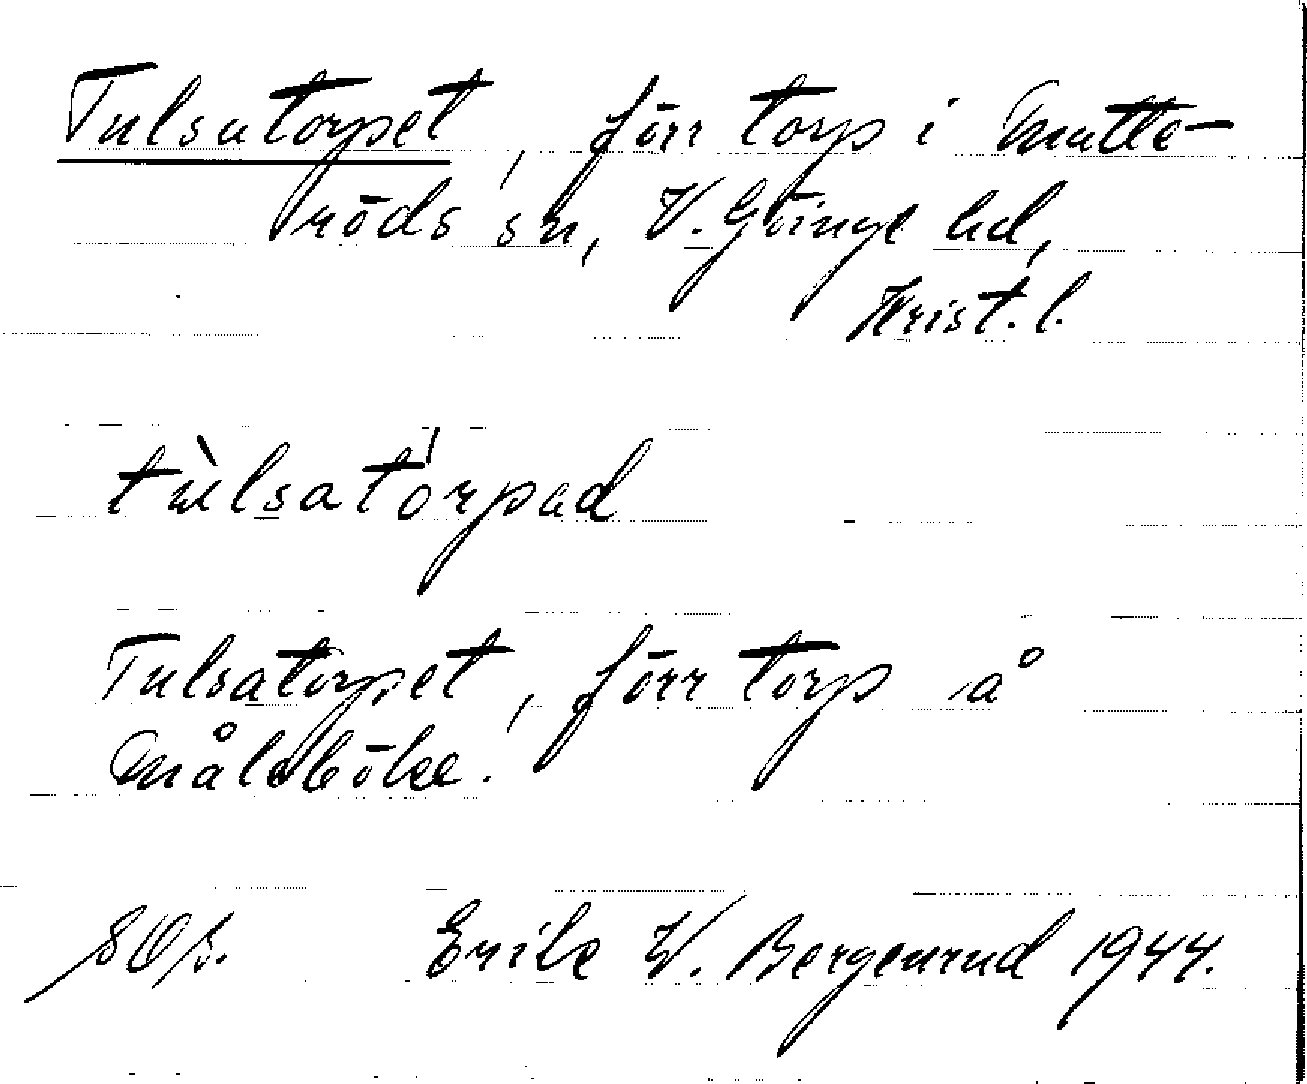 Tulsatorpet, förr torp i Matte-
röds sn, V. Göinge hd,
Krist. l.
tùlsatórpad
Tulsatorpet, förr torp å
Måleböke.
Erik W. Bergenrud 1944.